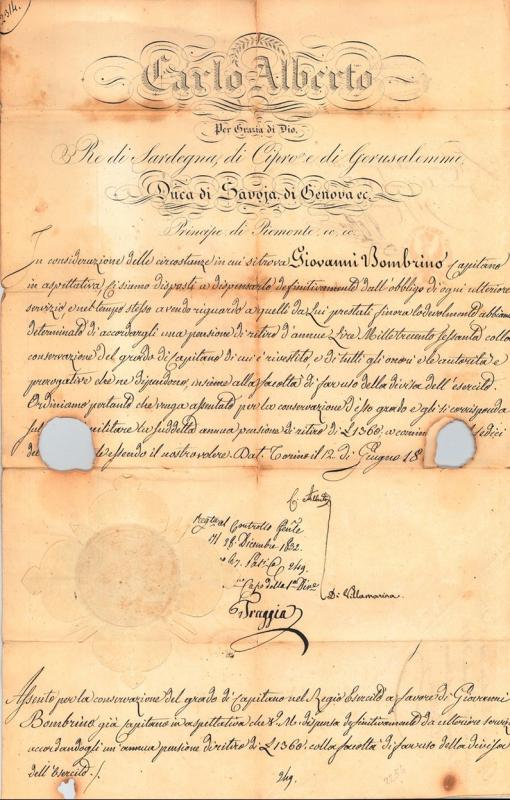 23/4.
Carlo Alberto
Per Grazia di Dio,
Re di Sardegna, di Cipro e di Gerusalemme,
Duca di Savoja, di Genova ec.
Principe di Piemonte, ec. ec.
In considerazione delle circostanze in cui si trova Giovanni Bombrino Capitano
in aspettativa Ci siamo disposti a dispensarlo definitivamente dall'obbligo di ogni ulteriore
servizio e nel tempo stesso avendo riguardo a quelli da Lui prestati finora lodevolmente abbiamo
determinato di accordargli una pensione di ritiro d'annue Lire Mille trecento sessanta colla
conservazione del grado di Capitano di cui è rivestito e di tutti gli onori e le autorità e
prerogative che ne dipendono, insieme alla facoltà di far uso della divisa dell'esercito.
Ordiniamo pertanto che venga assentato per la conservazione d'esso grado e gli si corrisponda
militare la suddetta annua pensione di ritiro di L. 1360. a
essendo il nostro volere. Dat. Torino il 12. di Giugno 18
C. Alberto
Reg.to al Controllo Gen.le
28 Dicembre 1832.
249.
Capo della 1.a Div.e
Fraggia
Di Villamarina.
Assento per la conservazione del grado di Capitano nel Regio Esercito a favore di Giovanni
Bombrino già Capitano in aspettativa che S. M. dispensa definitivamente da ulteriore servizio
accordandogli un'annua pensione di ritiro di L. 1360. colla facoltà di far uso della divisa
dell'Esercito./.
249.